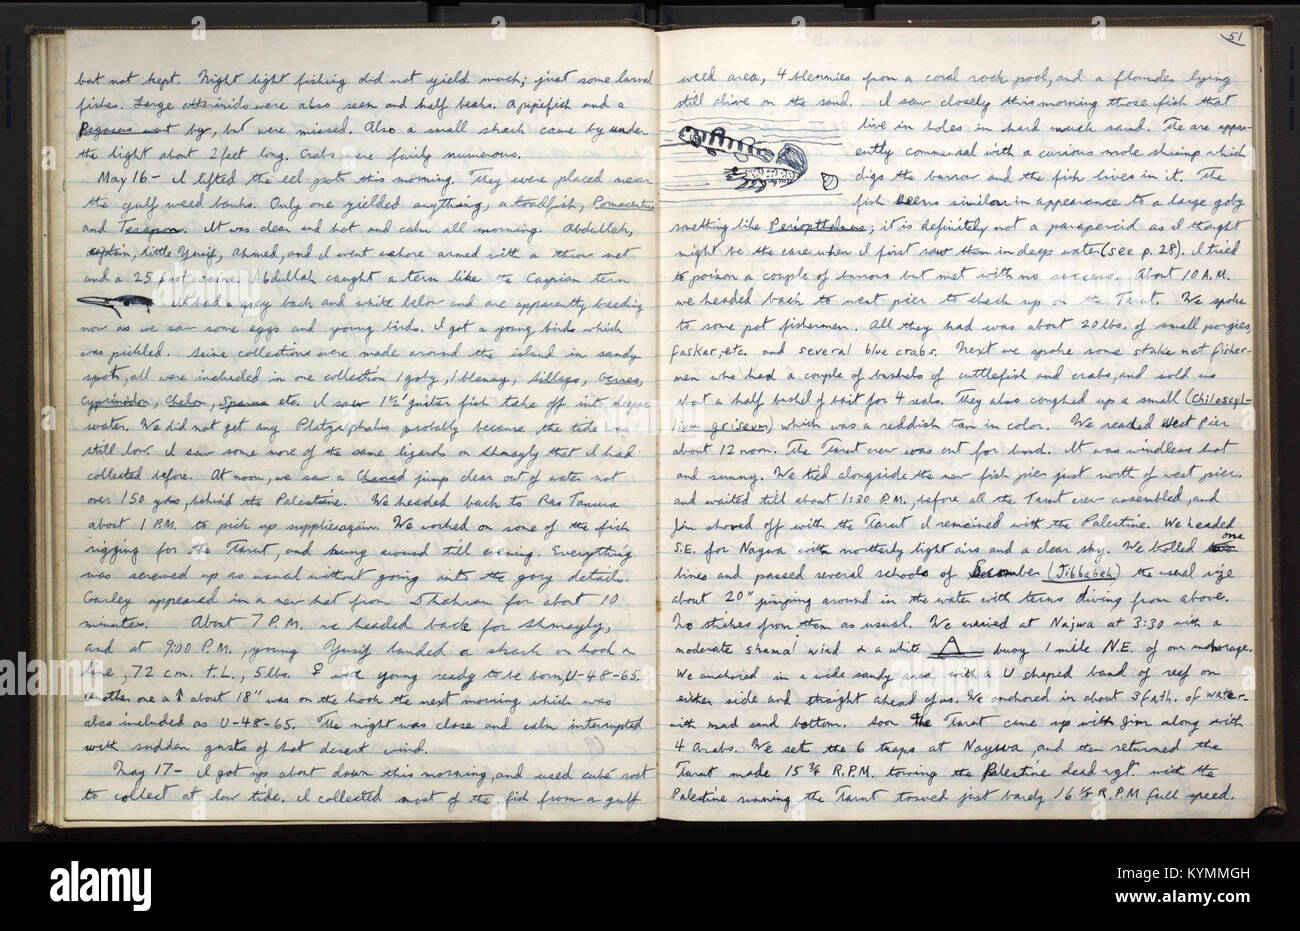 but not kept. Night light fishing did not yield much; just some larval
fishes. Large atherinids were also seen and half beaks. A pipefish and a
Pegasus went by, but were missed. Also a small shark came by under
the light about 2 feet long. Crabs were fairly numerous.
May 16- I lifted the eel pots this morning. They were placed near
the gulf weed banks. Only one yielded anything, a toadfish, Pomacentrus
and Teuapon. It was clear and hot and calm all morning. Abdullah,
captain, little Yusif, Ahmed, and I went ashore armed with a throw net
and a 25 foot seine. Abdullah caught a tern like the Caspian tern
It had a grey back and white below and are apparently breeding
now as we saw some eggs and young birds. I got a young bird which
was pickled. Seine collections were made around the island in sandy
spots, all were included in one collection 1 goby, 1 blenny, Sillago, Gerres,
Cyprinodon, Chelon, Sparus etc. I saw 1½' guitar fish take off into deeper
water. We did not get any Platycephalus probably because the tide was
still low. I saw some more of the same lizards on Shmagly that I had
collected before. At noon, we saw a Chanad jump clear out of water not
over 150 yds, behind the Palestine. We headed back to Ras Tanura
about 1 P.M. to pick up supplies again. We worked on some of the fish
rigging for the Tarut, and hung around till evening. Everything
was screwed up as usual without going into the gory details.
Gurley appeared in a new hat from Dhahran for about 10
minutes. About 7 P.M. we headed back for Shmagly,
and at 9:00 P.M., young Yusif landed a shark on hook &
line, 72 cm. T.L., 5 lbs. ♀ with young ready to be born, U-48-65.
Another one a ♂ about 18" was on the hook the next morning which was
also included as U-48-65. The night was close and calm interrupted
with sudden gusts of hot desert wind.
May 17- I got up about dawn this morning, and used cubé root
to collect at low tide. I collected most of the fish from a gulf
51
weed area, 4 blennies from a coral rock pool, and a flounder lying
still alive on the sand. I saw closely this morning those fish that
live in holes in hard muck sand. The are appar-
ently commensal with a curious mole shrimp which
digs the burrow and the fish lives in it. The
fish seems similar in appearance to a large goby
something like Periopthalmus; it is definitely not a parapercid as I thought
might be the case when I first saw them in deep water (see p. 28). I tried
to poison a couple of burrows but met with no success. About 10 A.M.
we headed back to west pier to check up on the Tarut. We spoke
to some pot fishermen. All they had was about 20 lbs. of small porgies,
faskar, etc. and several blue crabs. Next we spoke some stake net fisher-
men who had a couple of bushels of cuttlefish and crabs, and sold us
about a half bushel of bait for 4 reals. They also coughed up a small (Chiloscyl-
lium griseum) which was a reddish tan in color. We reached West Pier
about 12 noon. The Tarut crew was out for lunch. It was windless hot
and sunny. We tied alongside the new fish pier just north of west pier.
and waited till about 1:30 P.M., before all the Tarut crew assembled, and
Jim shoved off with the Tarut I remained with the Palestine. We headed
S.E. for Naywa with northerly light airs and a clear sky. We trolled one
lines and passed several schools of Scomber (Jibbabeh) the usual size
about 20" jumping around in the water with terns diving from above.
No strikes from them as usual. We arrived at Najwa at 3:30 with a
moderate shamal wind & a white A buoy 1 mile N.E. of our anchorage.
We anchored in a wide sandy area with a U shaped band of reef on
either side and straight ahead of us. We anchored in about 3 fath. of water
with mud sand bottom. Soon the Tarut came up with Jim along with
4 Arabs. We set the 6 traps at Naywa, and then returned the
Tarut made 15¾ R.P.M. towing the Palestine dead wgt. with the
Palestine running the Tarut towed just barely 16½ R.P.M full speed.